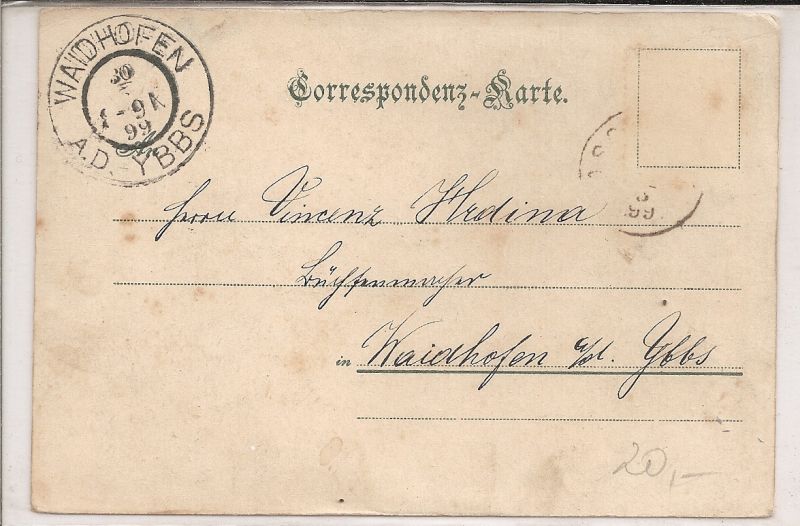 WAIDHOFEN
30
-9A
99
A.D. YBBS
Correspondenz-Karte.
An
99
Herrn Vincenz Hrdina
Büchsenmacher
in Waidhofen a/d. Ybbs
20,-